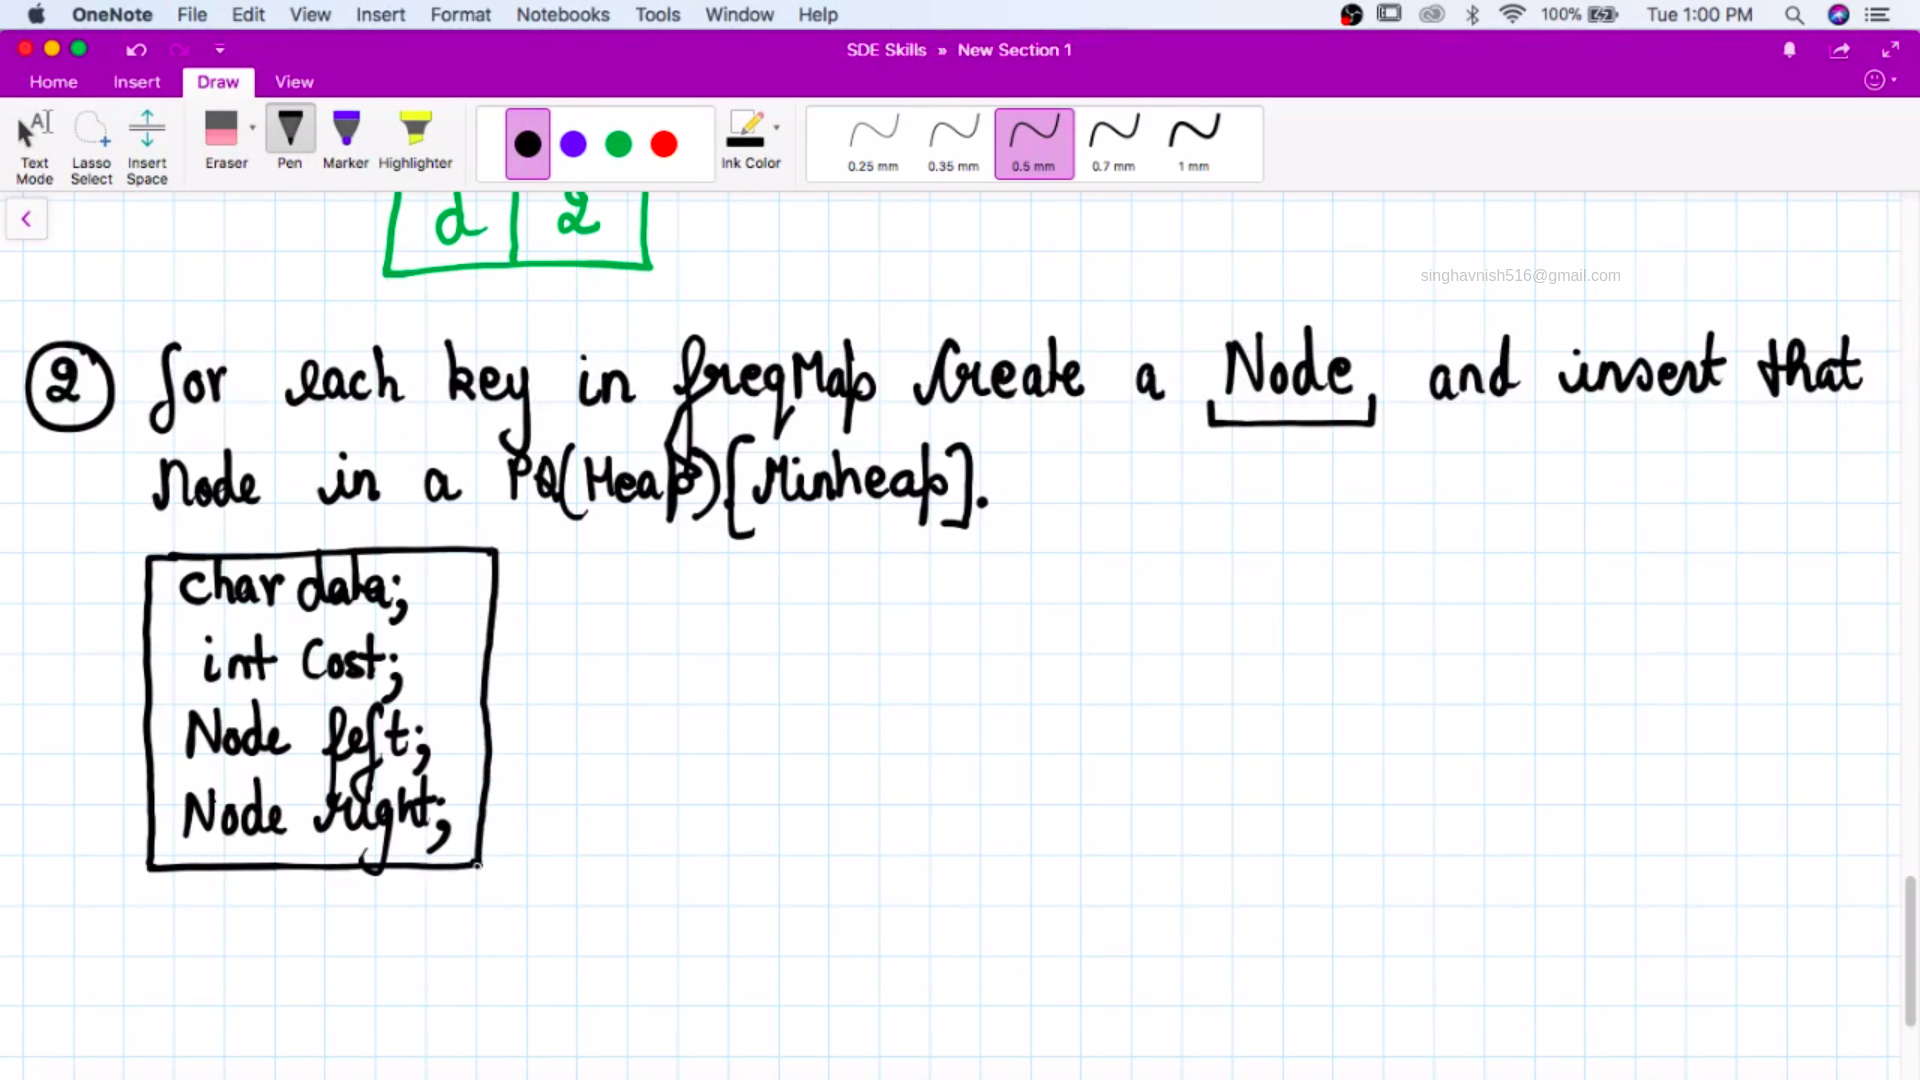 OneNote File Edit View Insert Format Notebooks Tools Window Help 100% Tue 1:00 PM
SDE Skills » New Section 1
Home Insert Draw View
Text Mode Lasso Select Insert Space Eraser Pen Marker Highlighter Ink Color 0.25 mm 0.35 mm 0.5 mm 0.7 mm 1 mm
d 2
singhavnish516@gmail.com
2 for each key in freqMap Create a Node and insert that
Node in a PQ(Heap)[Minheap].
char data;
int Cost;
Node left;
Node right;